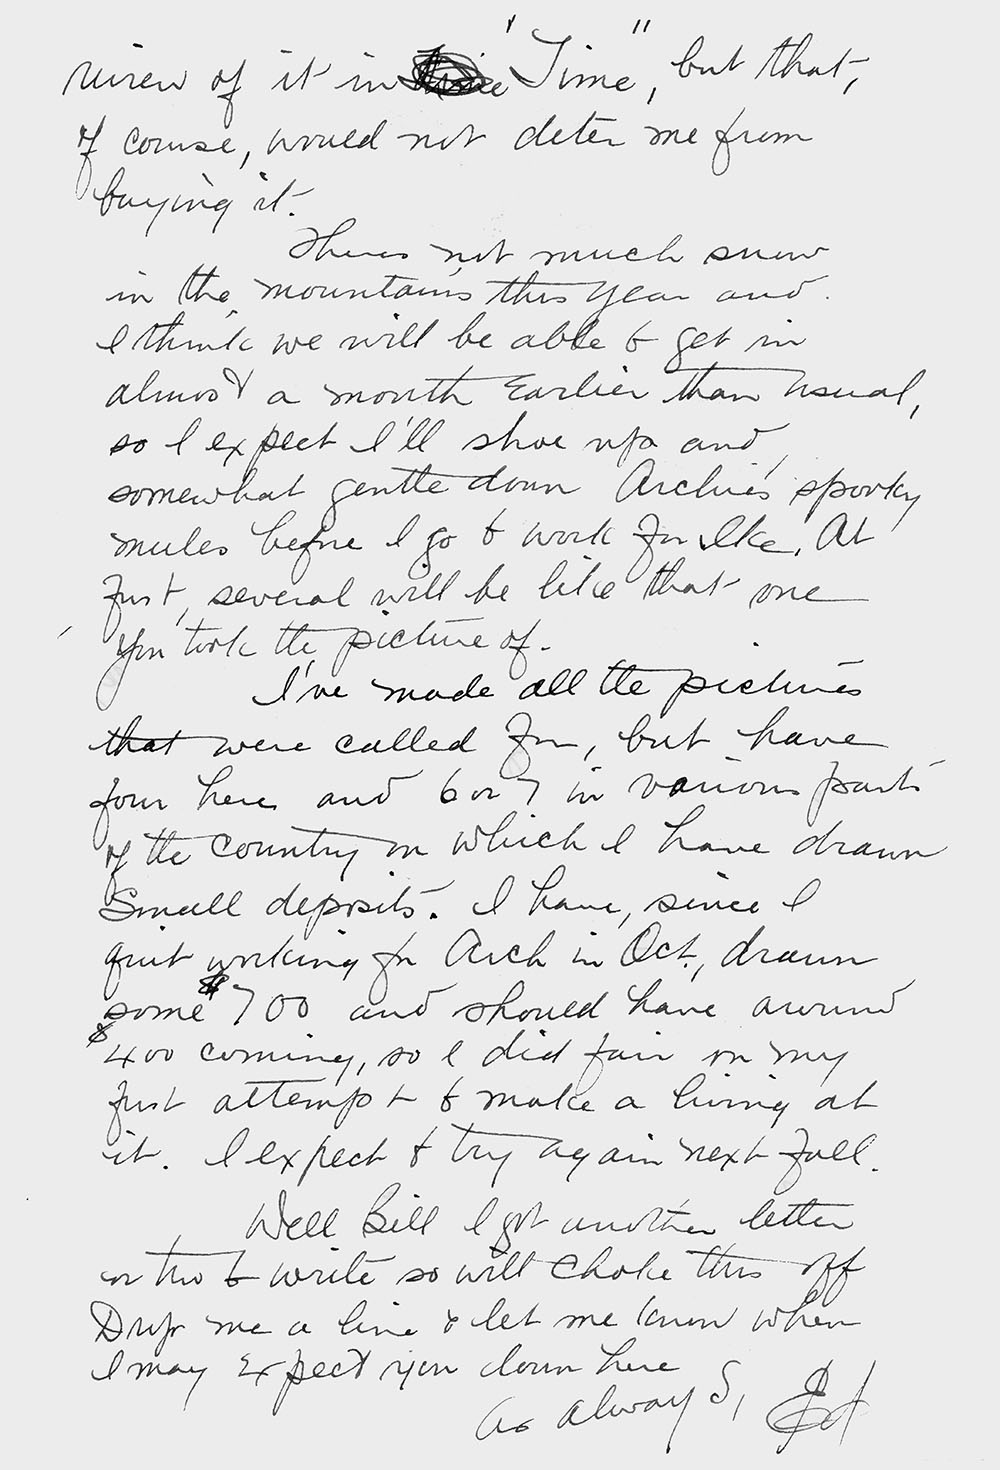 review of it in "Time", but that,
of course, would not deter me from
buying it.
Theres not much snow
in the mountains this year and
I think we will be able to get in
almost a month earlier than usual,
so I expect I'll shoe up and
somewhat gentle down Archie's spooky
mules before I go to work for Ike. At
first, several will be like that one
you took the picture of.
I've made all the pictures
that were called for, but have
four here and 6 or 7 in various parts
of the country on which I have drawn
small deposits. I have, since I
quit working for Arch in Oct., drawn
some $700 and should have around
$400 coming, so I did fair on my
first attempt to make a living at
it. I expect to try again next Fall.
Well Bill I got another letter
or two to write so will choke this off
Drop me a line & let me know when
I may Expect you down here
As always, Ed